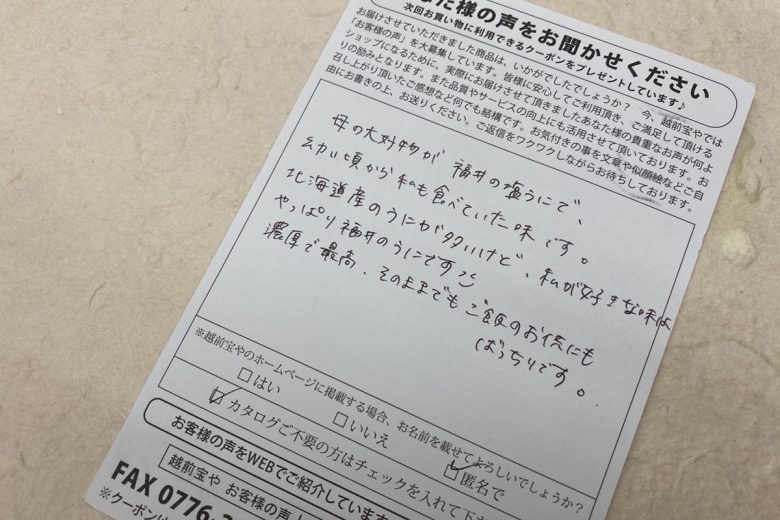 た様の声をお聞かせください
次回お買い物に利用できるクーポンをプレゼントしています♪
お届けさせていただきました商品は、いかがでしたでしょうか? 今、越前宝やでは
「お客様の声」を大募集しています。皆様に安心してご利用頂き、ご満足して頂ける
ショップになるために、実際にお届けさせて頂きましたあなた様の貴重なお声が何よ
りの励みとなります。また品質やサービスの向上にも活用させて頂いております。お
召し上がり頂いたご感想など何でも結構です。お気付きの事を文章や似顔絵などご自
由にお書きの上、お送りください。ご返信をワクワクしながらお待ちしております。
母の大好物が 福井の塩うにで、
幼い頃から私も食べていた味です。
北海道産のうにが多いけど、私が好きな味は
やっぱり福井のうにです
濃厚で最高、そのままでもご飯のお供にも
ばっちりです。
※越前宝やのホームページに掲載する場合、お名前を載せてよろしいでしょうか?
□はい □いいえ □匿名で
□カタログご不要の方はチェックを入れて下
お客様の声をWEBでご紹介しています
越前宝や お客様の声
FAX 0776-
※クーポンは